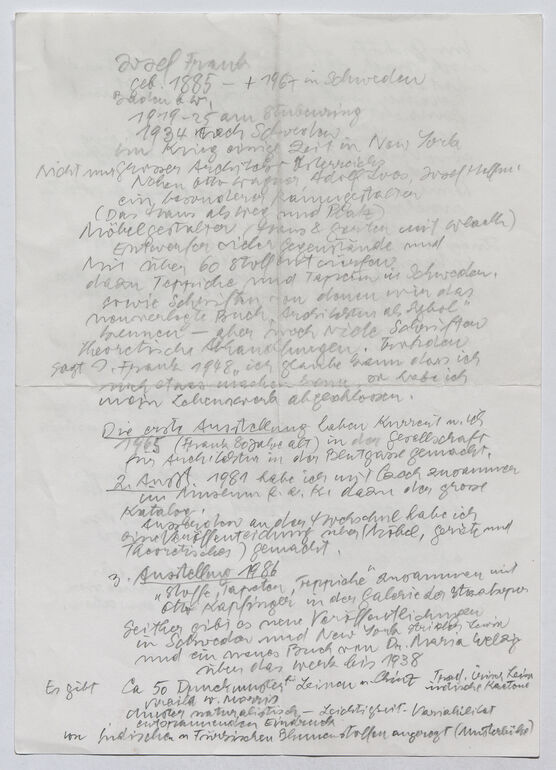 Josef Frank
geb. 1885 – + 1967 in Schweden
Baden b. W.
1919–25 am Stubenring
1934 nach Schweden
im Krieg einige Zeit in New York
Nicht nur grosser Architekt Österreichs
Neben Otto Wagner, Adolf Loos, Josef Hoffm.
ein besonderer Raumgestalter
(Das Haus als Weg und Platz)
Möbelgestalter (Haus & Garten mit Wlach)
Entwerfer vieler Gegenstände und
Mit über 60 Stoffentwürfen
dazu Teppiche und Tapeten in Schweden.
sowie Schriften von denen wir das
neuverlegte Buch „Architektur als Symbol"
kennen – aber noch viele Schriften
theoretische Abhandlungen. Trotzdem
sagt J. Frank 1948 „ich glaube kaum dass ich
noch etwas machen kann, so habe ich
mein Lebenswerk abgeschlossen.
Die erste Ausstellung haben Kurrent u. ich
1965 (Frank 80 Jahre alt) in der Gesellschaft
für Architektur in der Blutgasse gemacht.
2. Ausst. 1981 habe ich mit Czech zusammen
im Museum f. a. K. dazu der grosse
Katalog.
Ausserdem an der Hochschule habe ich
eine Veröffentlichung über (Möbel, Geräte und
Theoretisches) gemacht.
3. Ausstellung 1986
„Stoffe, Tapeten, Teppiche" zusammen mit
Otto Kapfinger in der Galerie der Staatsoper
Seither gibt es neue Veröffentlichungen
in Schweden und New York
und ein neues Buch von Dr. Maria Welzig
über das Werk bis 1938
Es gibt Ca 50 Druckmuster Leinen
W. Morris
Muster naturalistisch – Leichtigkeit – Variabilität
Eindruck
von indischen Blumenstoffen angeregt (Musterbücher)